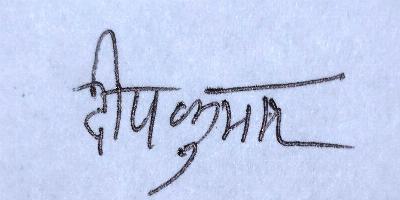 दीपकुमार